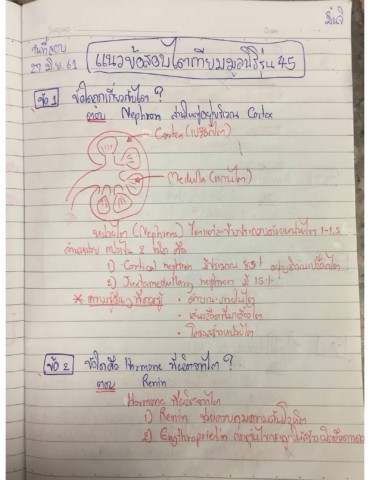 มินนี่
วันที่สอบ
27 มิ.ย. 61
แนวข้อสอบไตเทียมมูลนิธิรุ่น 45
ข้อ 1 ข้อใดถูกเกี่ยวกับไต ?
ตอบ Nephron ส่วนใหญ่อยู่บริเวณ Cortex
Cortex (เปลือกไต)
Medulla (แกนไต)
หน่วยไต (Nephrons) ไตแต่ละข้างประกอบด้วยหน่วยไต 1-1.2
ล้านหน่วย แบ่งเป็น 2 ชนิด คือ
1) Cortical nephron มีประมาณ 85% อยู่บริเวณเปลือกไต
2) Juxtamedullary nephron มี 15%
* ความรู้อื่นๆ ที่ควรรู้ • ลักษณะภายในไต
• เส้นเลือดที่มาเลี้ยงไต
• โครงสร้างหน่วยไต
ข้อ 2 ข้อใดคือ Hormone ที่ผลิตจากไต ?
ตอบ Renin
Hormone ที่ผลิตจากไต
1) Renin ช่วยควบคุมความดันโลหิต
2) Erythropoietin กระตุ้นไขกระดูกให้สร้างเม็ดเลือดแดง